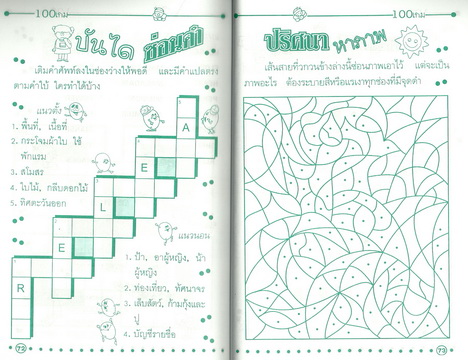 100เกม
บันได ซ่อนคำ
เติมคำศัพท์ลงในช่องว่างให้พอดี และมีคำแปลตรง
ตามคำใบ้ ใครทำได้บ้าง
แนวตั้ง
1. พื้นที่, เนื้อที่
2. กระโจมผ้าใบ ใช้
พักแรม
3. สโมสร
4. ใบไม้, กลีบดอกไม้
5. ทิศตะวันออก
A
E
L
E
R
แนวนอน
1. ป้า, อาผู้หญิง, น้า
ผู้หญิง
2. ท่องเที่ยว, ทัศนาจร
3. เล็บสัตว์, ก้ามกุ้งและ
ปู
4. บัญชีรายชื่อ
72
100เกม
ปริศนา หาภาพ
เส้นสายที่วกวนข้างล่างนี้ซ่อนภาพเอาไว้ แต่จะเป็น
ภาพอะไร ต้องระบายสีหรือแรเงาทุกช่องที่มีจุดดำ
73